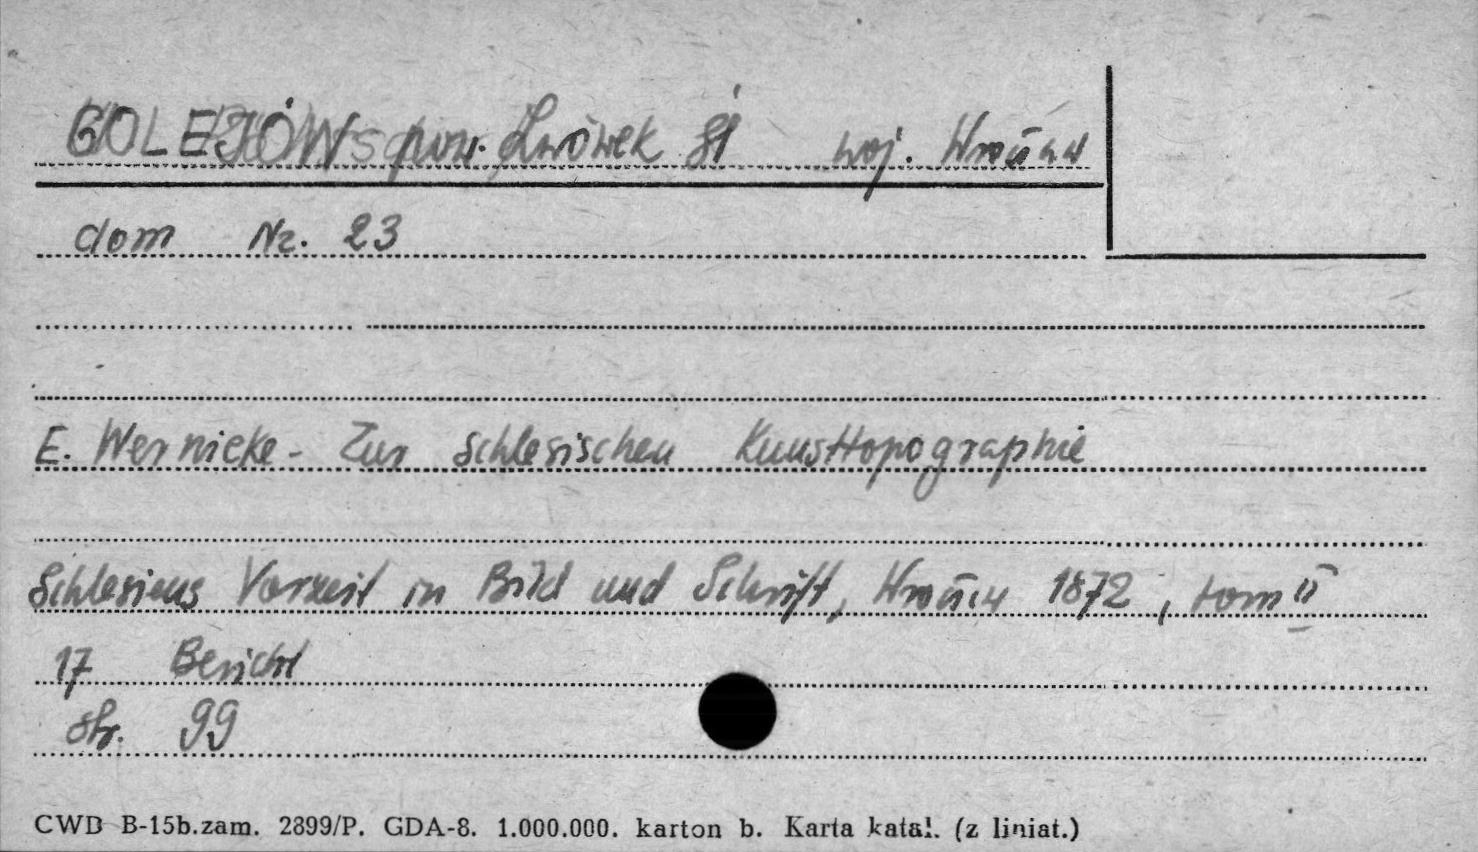 GOLEJÓW pow. Lwówek Śl woj. Wrocław
dom Nr. 23
E. Wernicke - Zur Schlesischen Kunsttopographie
Schlesiens Vorzeit in Bild und Schrift, Wrocław 1872, tom II
17 Bericht
str. 99
CWD B-15b.zam. 2899/P. GDA-8. 1.000.000. karton b. Karta katal. (z liniat.)